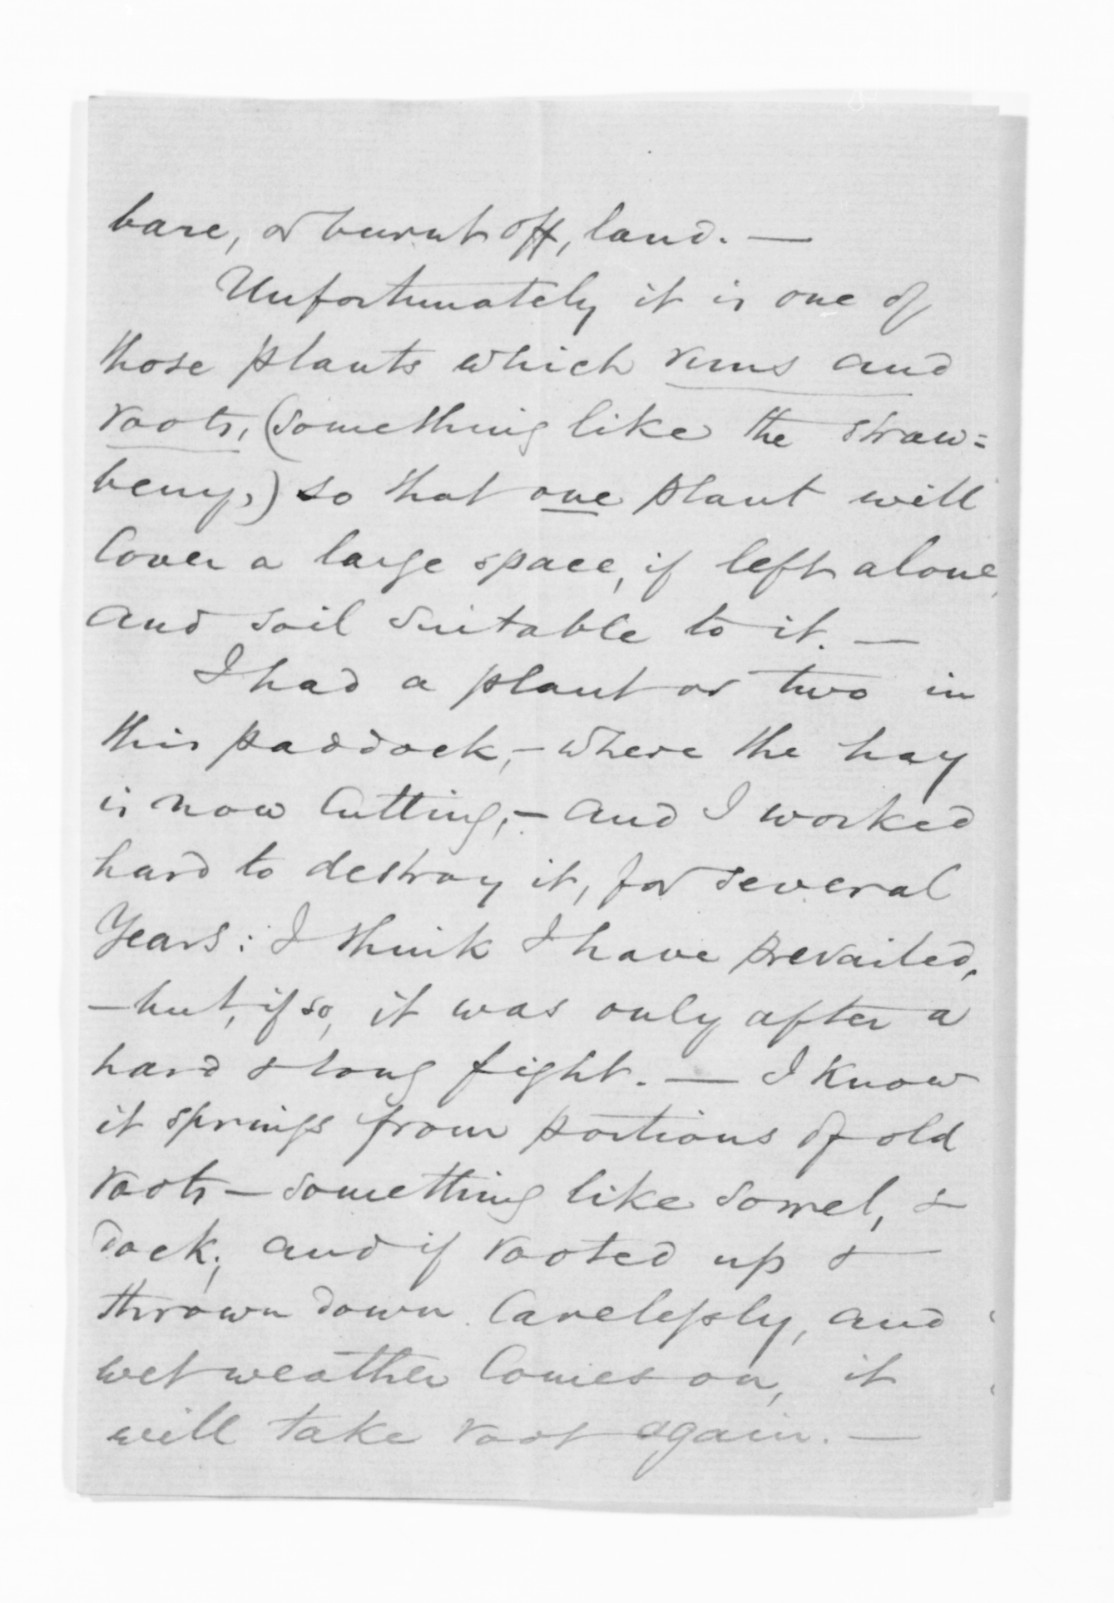 bare, or burnt off, land. —
Unfortunately it is one of
those plants which runs and
roots, (something like the straw=
berry,) so that one plant will
Cover a large space, if left alone,
and soil suitable to it. —
I had a plant or two in
this paddock, – where the hay
is now Cutting, – and I worked
hard to destroy it, for several
Years: I think I have prevailed,
– but, if so, it was only after a
hard & long fight. — I know
it springs from portions of old
roots – something like sorrel, &
dock; and if rooted up &
thrown down Carelessly, and
wet weather Comes on, it
will take root again. —